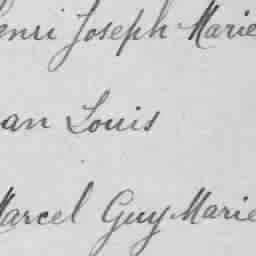 enri Joseph Marie
an Louis
Marcel Guy Marie